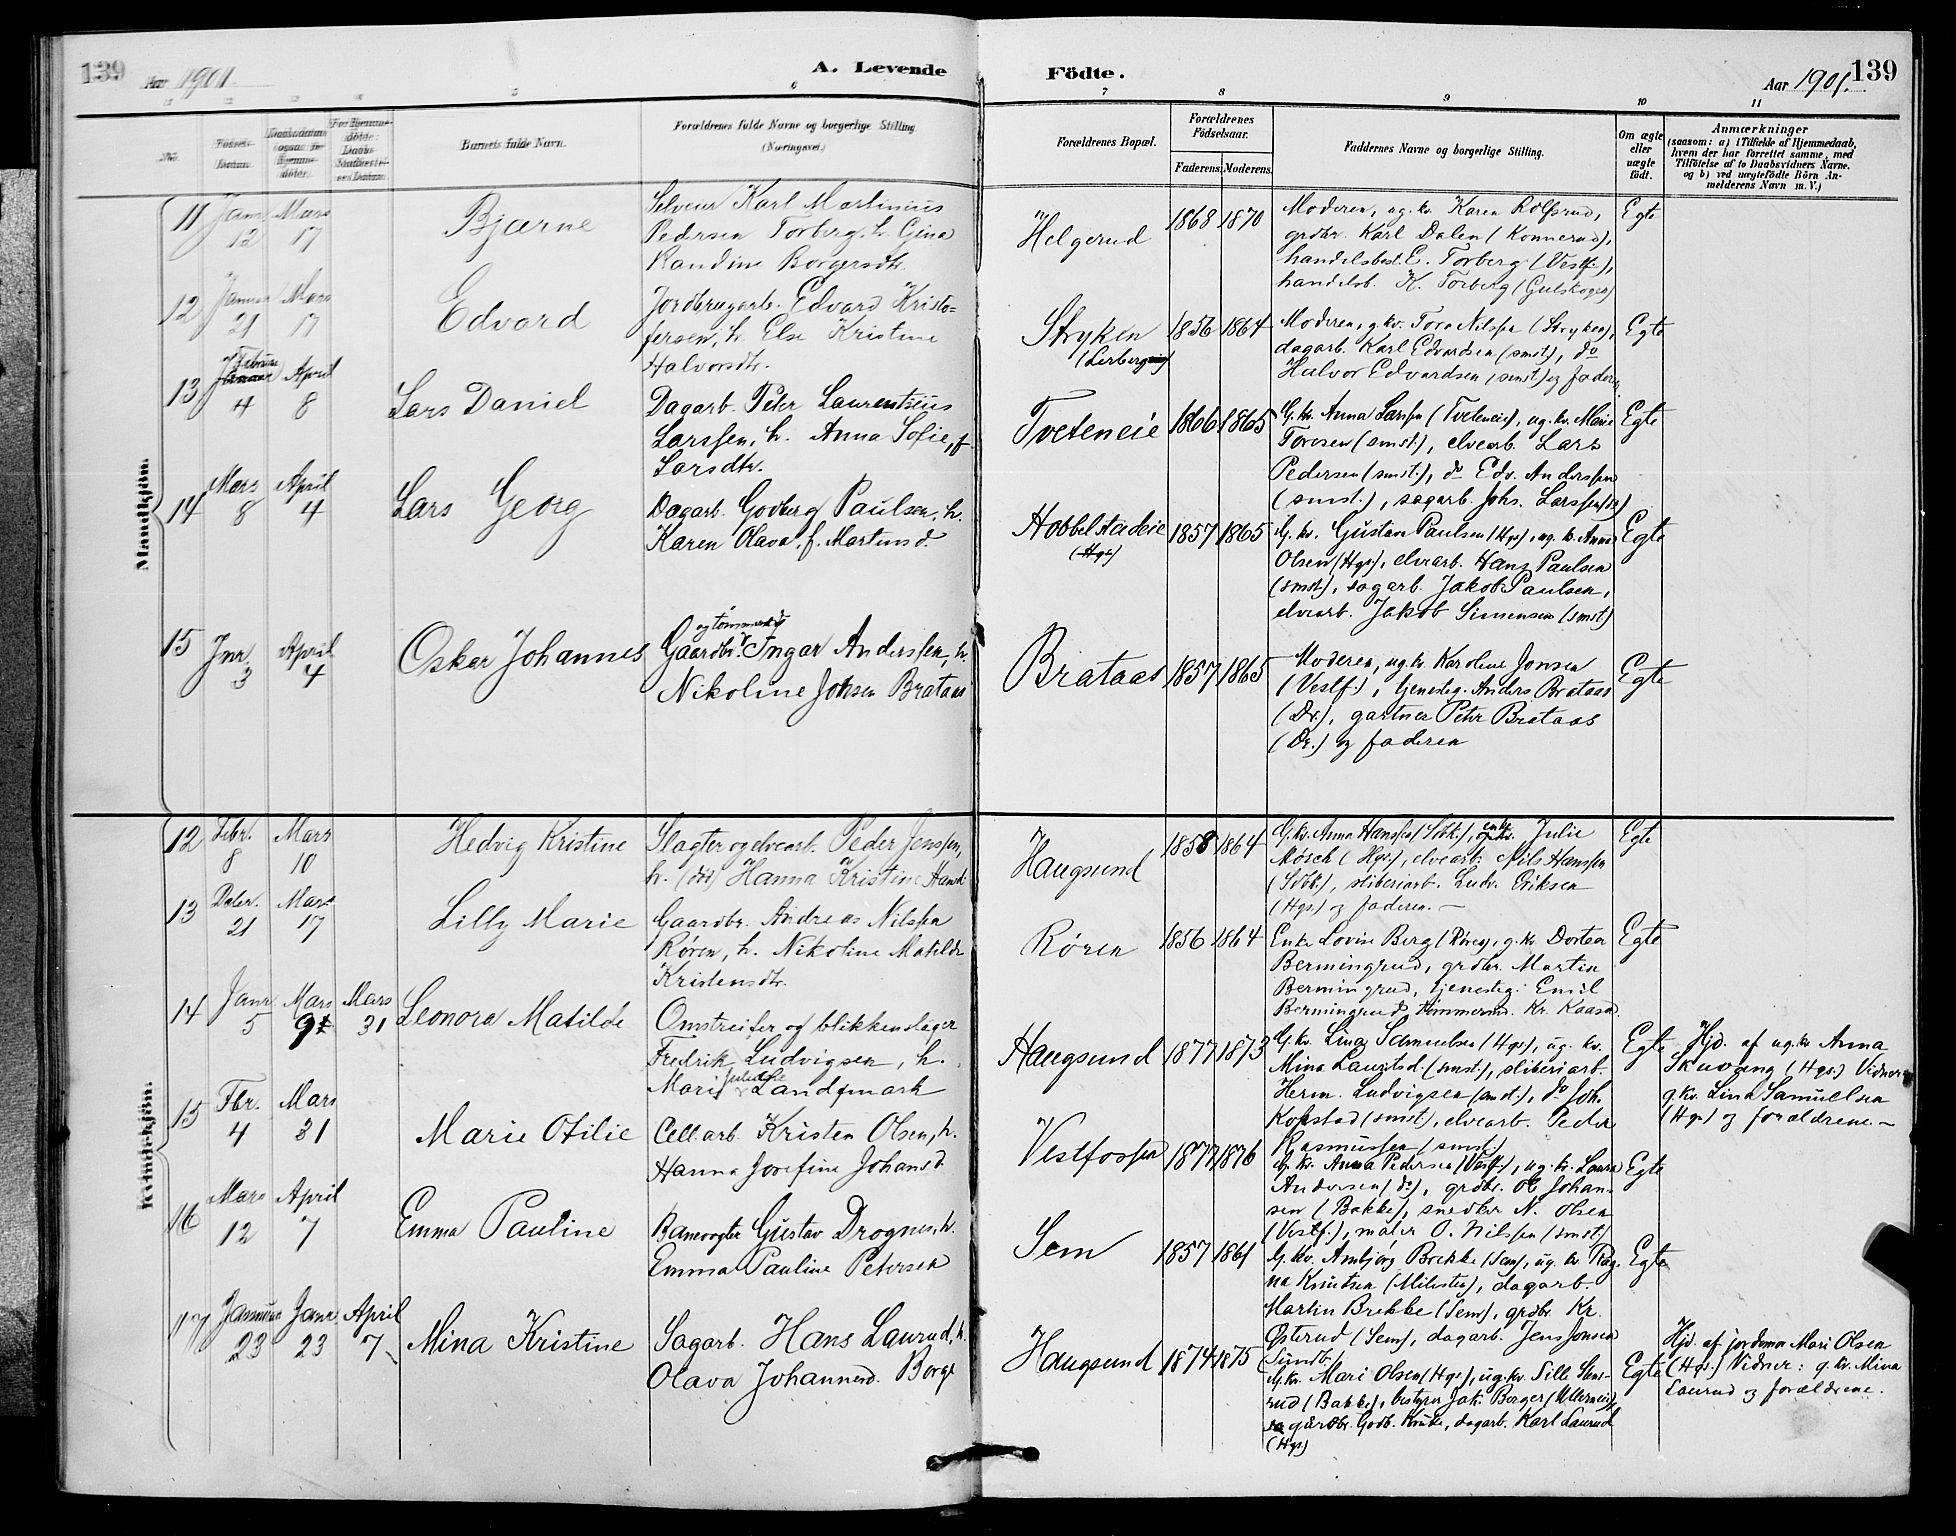 139
Aar 1901.
A. Levende
Födte.
Aar 1901.
139
5
6
7
8
9
10
11
No.
Födsels-
Datum.
Barnets fulde Navn.
Forældrenes fulde Navne og borgerlige Stilling.
(Næringsvei.)
Forældrenes Bopæl.
Forældrenes
Födselsaar.
Faderens.
Moderens.
Faddernes Navne og borgerlige Stilling.
Om ægte
eller
uægte
födt.
Anmærkninger
(saasom: a) i Tilfælde af Hjemmedaab,
hvem der har forrettet samme, med
Tilföielse af to Daabsvidners Navne.
og b) ved uægtefödte Börn An-
melderens Navn m. V.)
Mandkjön.
11
Janr. 12
Mars 17
Bjarne
Selveier Karl Martinius
Pedersen Torberg, h. Gina
Randine Borgersdtr.
Helgerud
1868
1870
Moderen, ug. kv. Karen Rolfsrud,
grdbr. Karl Dalen (Konnerud),
handelsbest. E. Torberg (Vestf.),
handelsb. K. Torberg (Gulskogen)
Egte
12
Januar 21
Mars 17
Edvard
Jordbrugarb. Edvard Kristo-
fersen, h. Else Kristine
Halvorsdtr.
Stryken
1856
1864
Moderen, g. kv. Tora Nilssen (Stryken),
dagarb. Karl Edvardsen (smst), do
Halvor Edvardsen (smst) og faderen
Egte
13
Februar
4
April 8
Lars Daniel
Dagarb. Peter Laurentsius
Larssen, h. Anna Sofie, f.
Larsdtr.
Tveteneie
1866
1865
G. kv. Anna Larssen (Tveteneie), ug. kv. Marie
Toresen (smst.), elvearb. Lars
Pedersen (smst.), do Edv. Anderssen
(smst.), sagarb. Johs. Larssen (do)
Egte
14
Mars 8
April 4
Lars Georg
Dagarb. Godberg Paulsen, h.
Karen Olava, f. Martinsd.
Hobbelstadeie
(Hgs)
1857
1865
G. kv. Gustava Paulsen (Hgs), ug. k. Anna
Olsen (Hgs), elvearb. Hans Paulsen
(smst), sagarb. Jakob Paulsen,
elvearb. Jakob Simensen (smst)
Egte
15
Jnr. 3
April 4
Oskar Johannes
og tømmermd
Gaardbr. Ingar Anderssen, h.
Nikoline Johsen Brataas
Brataas
1857
1865
Moderen, ug. k. Karoline Jonsen
(Vestf.), tjenesteg. Anders Brataas
(Dr.), gartner Petr Brataas
(Dr.) og faderen
Egte
Kvindekjön.
12
Febr. 8
Mars 10
Hedvig Kristine
Slagter og elvearb. Peder Jenssen,
h. (død) Hanna Kristine Hansd.
Haugsund
1858
1864
G. kv. Anna Hanssen (Sbk.), enke Julie
Mosch (Hgs.), elvearb. Nils Hanssen
(Sbk.), sliberiarb. Ludv. Eriksen
(Hgs.) og faderen. —
Egte
13
21
Mars 17
Lilly Marie
Gaardbr. Andreas Nilssen
Røren, h. Nikoline Matilde
Kristensdtr.
Røren
1856
1864
Enke Lovise Berg (Røren), g. kv. Dortea
Bermingrud, grdbr. Martin
Bermingrud, tjenesteg. Emil
Bermingrud, tømmermd. Kr. Kaasa.
Egte
14
Janr. 5
Mars 9
Mars 31
Leonora Matilde
Omstreifer og blikkenslager
Fredrik Ludvigsen, h.
Marie Landqmark
Haugsund
1877
1873
G. kv. Lina Samuelsen (Hgs), ug. kv.
Mina Lauritsd. (smst.), sliberiarb.
Herm. Ludvigsen (smst.), do Joh.
Kopstad (smst), elvearb. Peder
Rasmussen (smst.)
Egte
Hjd. af ug. kv. Anna
Skuvang (Hgs.) Vidner:
g. kv. Lina Samuelsen
(Hgs) og forældrene. —
15
Fbr. 4
Mars 31
Marie Otilie
Cell. arb. Kristen Olsen, h.
Hanna Josefine Johansd.
Vestfossen
1877
1876
G. kv. Anna Pedersen (Vestf.), ug. k. Laura
Andersen (do), grdbr. Ol. Johan-
sen (Bakke), snedker N. Olsen
(Vestf.), maler O. Nilssen (smst)
Egte
16
Mars 12
April 7
Emma Pauline
Banevogter Gustav Drognes, h.
Emma Pauline Petersen
Sem
1857
1861
G. kv. Ambjørg Brekke (Sem), ug. kv. Rag-
na Knutsen (Milesten), dagarb
Martin Brekke (Sem), grdbr. Kr.
Østerud (Sem), dagarb. Jens Jonsen
(Sundb.)
Egte
17
Januar 23
Janr. 23
April 7
Mina Kristine
Sagarb. Hans Laurud, h.
Olava Johannesd. Borge
Haugsund
1874
1875
G. kv. Mari Olsen (Hgs), ug. kv. Sille Sens-
rud (Bakke), bestyrer Jak. Borger (Ulverneie),
gårdbr. Godb. Knive, dagarb. Karl Laurud
(Hgs)
Egte
Hjd. af jordemor Mari Olsen
(Hgs.) Vidner: g. kv. Mina
Laurud og forældrene.